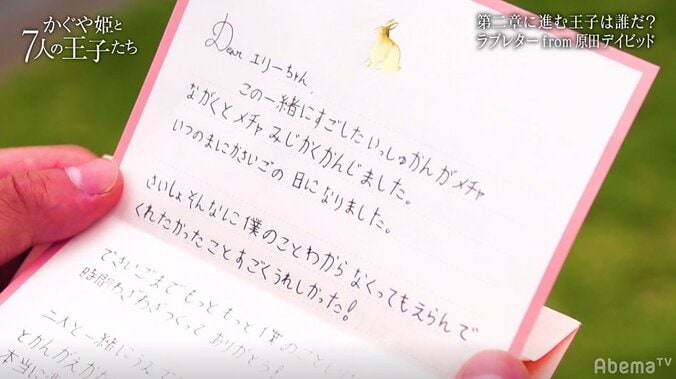 かぐや姫と
7人の王子たち
第二章に進む王子は誰だ?
ラブレター from 原田デイビッド
Dear エリーちゃん、
この一緒にすごしたいっしゅかんがメチャ
ながくとメチャみじかくかんじました。
いつのまにかさいごの日になりました。
さいしょそんなに僕のことわからなくってもえらんで
くれたかったことすごくうれしかった!
でさいごまでもっともっと僕のこと
時間わざわざつくってありがとう!
二人と一緒に
とかんがえ
本当に
AbemaTV